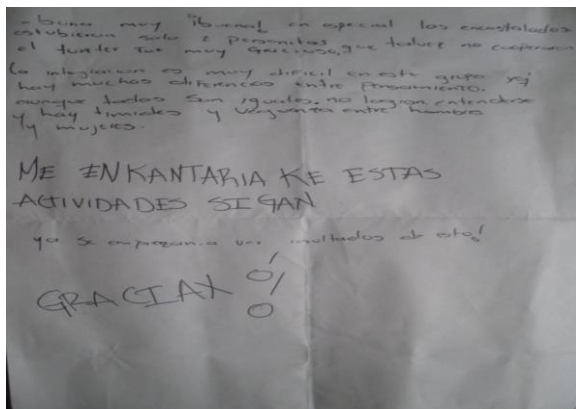 - buno muy ¡buena! en especial los encostalados
estubieron solo 2 personitas
el tunder fue muy gracioso, que talvez no cooperaron
La integracion es muy dificil en este grupo
hay muchas diferencias entre Pensamiento.
aunque todos son iguales, no logran entenderse
y hay timides y verguenza entre hombres
y mujeres.
ME ENKANTARIA KE ESTAS
ACTIVIDADES SIGAN
ya se empezan a ver resultados de esto!
GRACIAX